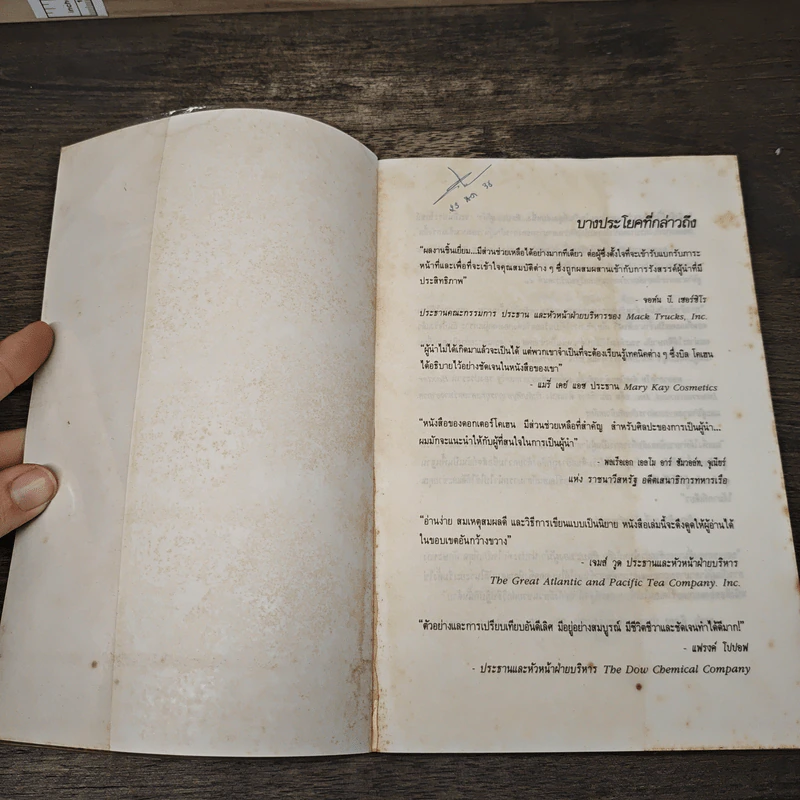 บางประโยคที่กล่าวถึง
"ผลงานชิ้นเยี่ยม...มีส่วนช่วยเหลือได้อย่างมากทีเดียว ต่อผู้ซึ่งตั้งใจที่จะเข้ารับแบกรับภาระ
หน้าที่และเพื่อที่จะเข้าใจคุณสมบัติต่าง ๆ ซึ่งถูกผสมผสานเข้ากับการรังสรรค์ผู้นำที่มี
ประสิทธิภาพ"
- จอห์น บี. เคอร์ซิโร
ประธานคณะกรรมการ ประธาน และหัวหน้าฝ่ายบริหารของ Mack Trucks, Inc.
"ผู้นำไม่ได้เกิดมาแล้วจะเป็นได้ แต่พวกเขาจำเป็นที่จะต้องเรียนรู้เทคนิคต่าง ๆ ซึ่งบิล โคเฮน
ได้อธิบายไว้อย่างชัดเจนในหนังสือของเขา"
- แมรี่ เคย์ แอช ประธาน Mary Kay Cosmetics
"หนังสือของดอกเตอร์โคเฮน มีส่วนช่วยเหลือที่สำคัญ สำหรับศิลปะของการเป็นผู้นำ...
ผมมักจะแนะนำให้กับผู้ที่สนใจในการเป็นผู้นำ"
- พลเรือเอก เอลโม อาร์ ซัมวอล์ท, จูเนียร์
แห่ง ราชนาวีสหรัฐ อดีตเสนาธิการทหารเรือ
"อ่านง่าย สมเหตุสมผลดี และวิธีการเขียนแบบเป็นนิยาย หนังสือเล่มนี้จะดึงดูดให้ผู้อ่านได้
ในขอบเขตอันกว้างขวาง"
- เจมส์ วูด ประธานและหัวหน้าฝ่ายบริหาร
The Great Atlantic and Pacific Tea Company. Inc.
"ตัวอย่างและการเปรียบเทียบอันดีเลิศ มีอยู่อย่างสมบูรณ์ มีชีวิตชีวาและชัดเจนทำได้ดีมาก!"
- แฟรงค์ โปปอฟ
- ประธานและหัวหน้าฝ่ายบริหาร The Dow Chemical Company